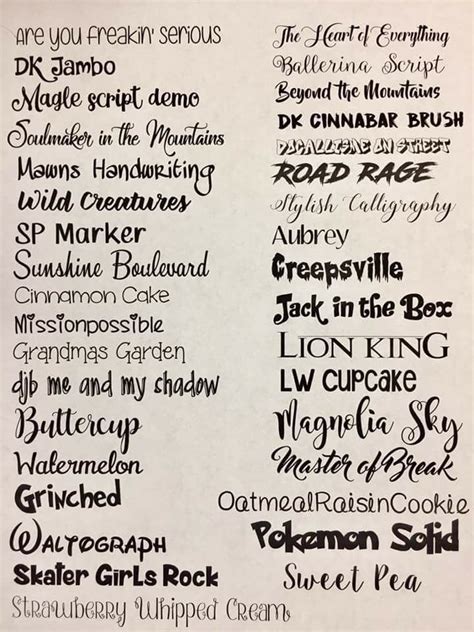 Are you freakin' serious
DK Jambo
Magle script demo
Soulmaker in the Mountains
Mawns Handwriting
Wild Creatures
SP Marker
Sunshine Boulevard
Cinnamon Cake
Missionpossible
Grandmas Garden
djb me and my shadow
Buttercup
Watermelon
Grinched
Waltograph
Skater Girls Rock
Strawberry Whipped Cream
The Heart of Everything
Ballerina Script
Beyond the Mountains
DK Cinnabar Brush
on Street
Road Rage
Stylish Calligraphy
Aubrey
Creepsville
Jack in the Box
Lion King
LW Cupcake
Magnolia Sky
Master of Break
OatmealRaisinCookie
Pokemon Solid
Sweet Pea